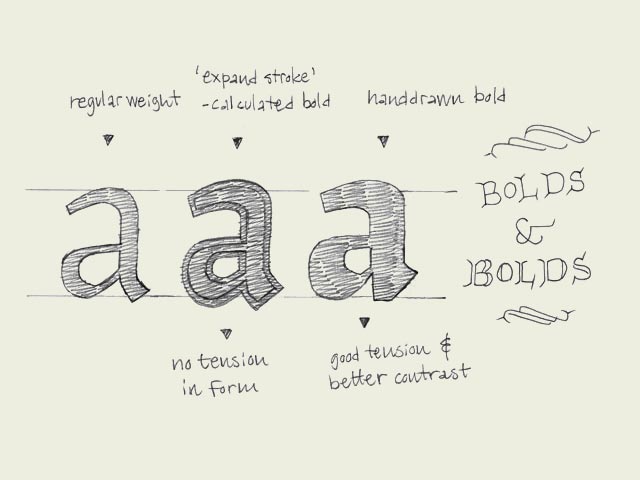 regular weight
'expand stroke'
-calculated bold
handdrawn bold
a a a
BOLDS
&
BOLDS
no tension
in form
good tension &
better contrast